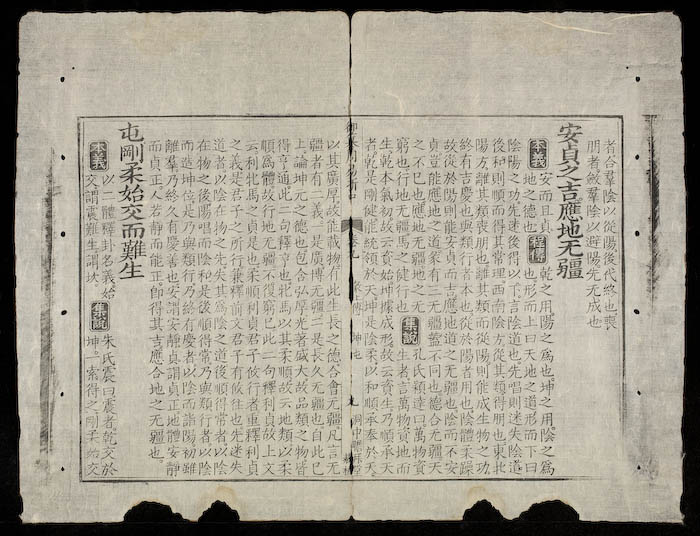 者合羣陰以從陽後代終也喪
朋者斂羣陰以避陽先无成也
安貞之吉應地无疆
本義 安而且貞
地之德也 程傳 乾之用陽之為也坤之用陰之為
也形而上曰天地之道形而下曰
陰陽之功先迷後得以下言陰道也先唱則迷失陰道
後和則順而得其常理西南陰方從其類得朋也東北
陽方離其類喪朋也離其類而從陽則能成生物之功
終有吉慶也與類行者本也從於陽者用也陰體柔躁
故從於陽則能安貞而吉應地道之无疆也陰而不安
貞豈能應地之道彖有三无疆蓋不同也德合无疆天
之不已也應地无疆地之无
窮也行地无疆馬之健行也 集說 孔氏穎達曰萬物資
生者言萬物資地而
生乾本氣初故云資始坤據成形故云資生乃順承天
者乾是剛健能統領於天坤是陰柔以和順承奉於天
御纂周易折中 卷九 彖上傳 坤屯 九
以其廣厚故能載物有此生長之德合會无疆凡言无
疆者有二義一是廣博无疆二是長久无疆也自此已
上論坤元之德也包含弘厚光著盛大故品類之物皆
得亨通此二句釋亨也牝馬以其柔順故云地類以柔
順為體故行地无疆不復窮已此二句釋利貞故上文
云利牝馬之貞是也柔順利貞君子攸行者重釋利貞
之義是君子之所行兼釋前文君子有攸往也先迷失
道者以陰在物之先失其為陰之道後順得常者以陰
在物之後陽唱而陰和是後順得常乃與類行者以陰
而造坤位是乃與類行乃終有慶者以陰而詣陽初雖
離羣乃終久有慶善也安謂安靜貞謂貞正地體安靜
而貞正人若靜而能正即得其吉應合地之无疆也
屯剛柔始交而難生
本義 以二體釋卦名義始
交謂震難生謂坎 集說 朱氏震曰震者乾交於
坤一索得之剛柔始交